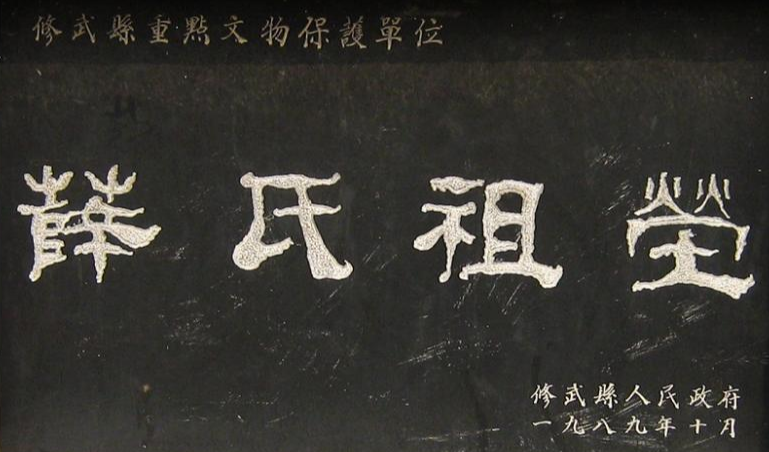 修武縣重點文物保護單位
薛氏祖塋
修武縣人民政府
一九八九年十月